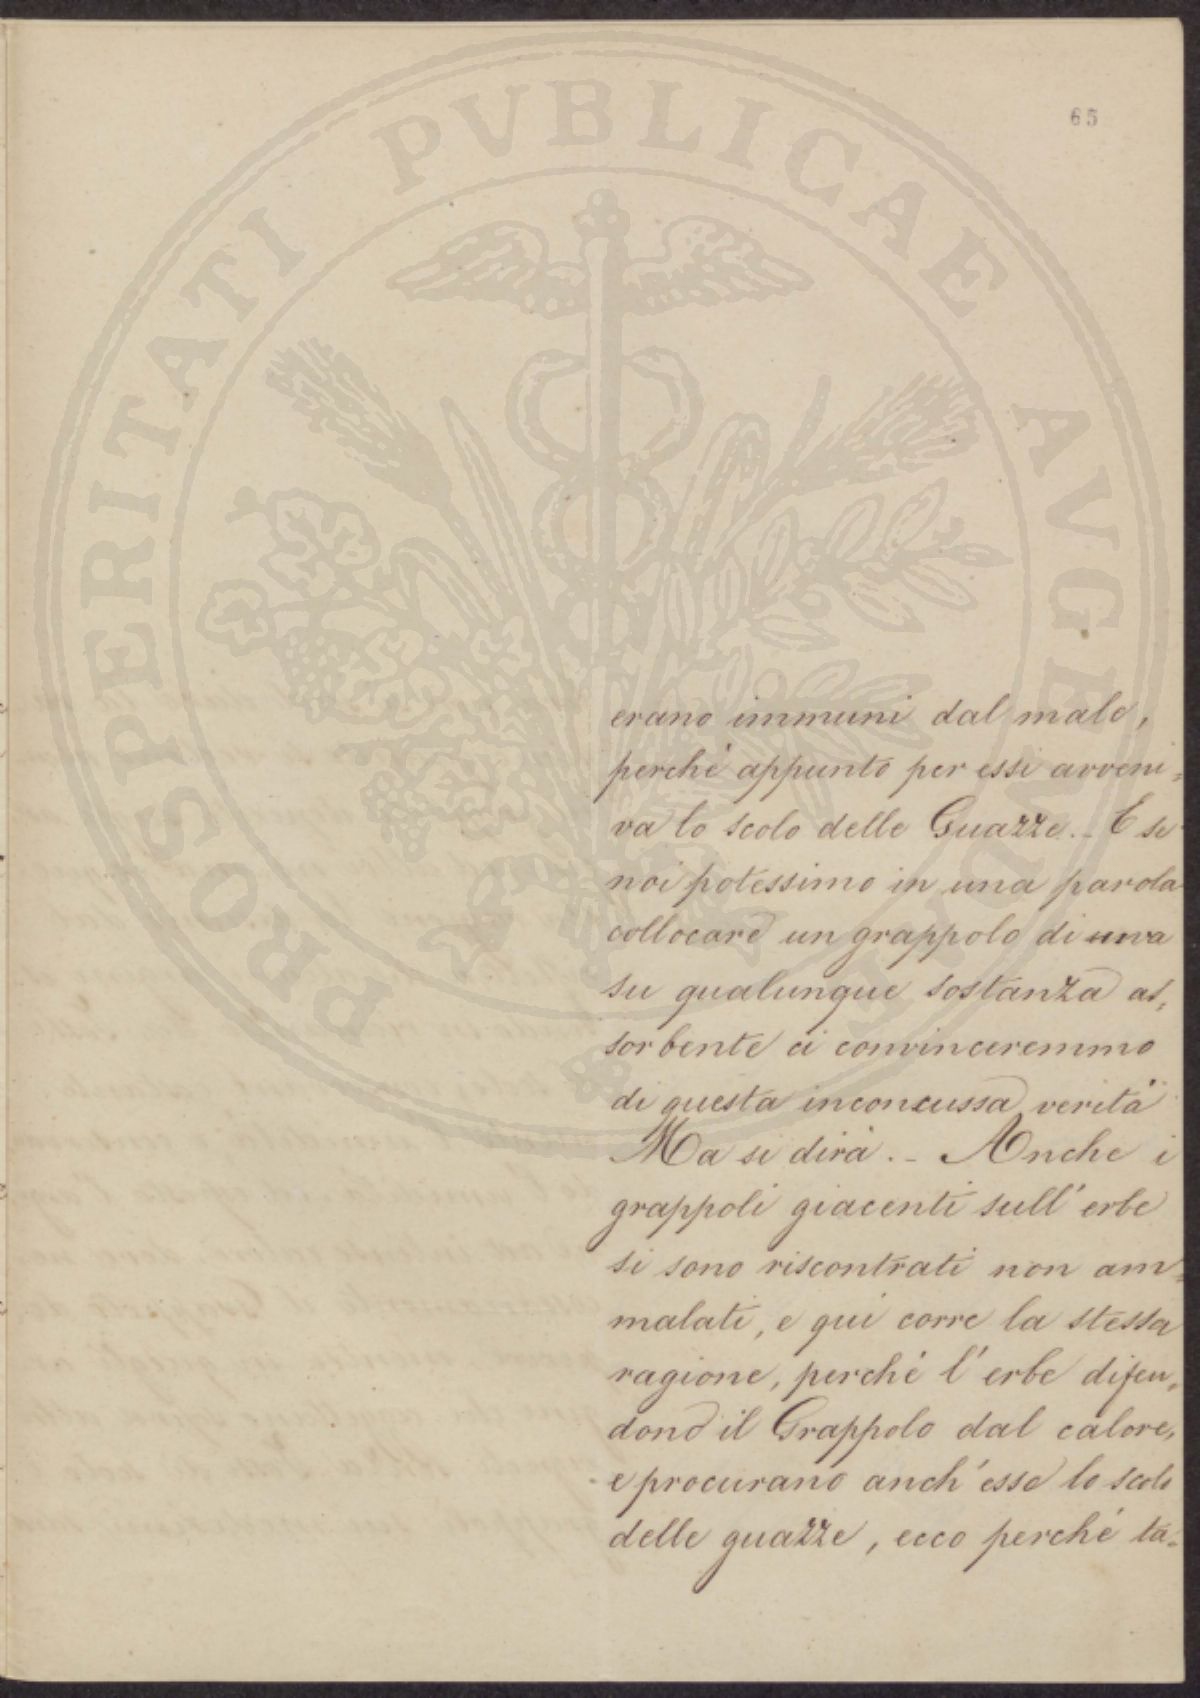 PROSPERITATI PUBLICAE AVGENDAE
65
erano immuni dal male,
perché appunto per essi avveni=
va lo scolo delle Guazze._ E se
noi potessimo in una parola
collocare un grappolo di uva
su qualunque sostanza as=
sorbente ci convinceremmo
di questa inconcussa verità
Ma si dirà._ Anche i
grappoli giacenti sull'erbe
si sono riscontrati non am=
malati, e qui corre la stessa
ragione, perché l'erbe difen=
dono il Grappolo dal calore,
e procurano anch'esse lo scolo
delle guazze, ecco perché ta=